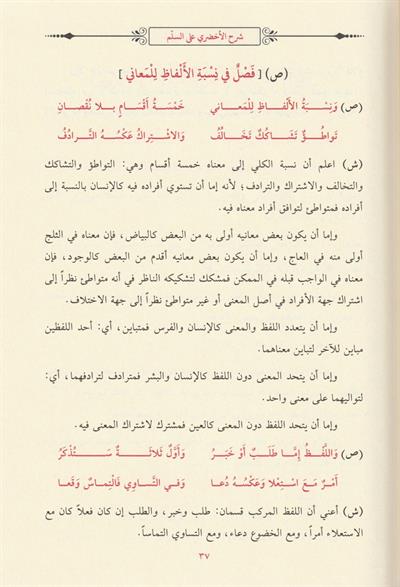 شرح الأخضري على السلّم
(ص) [ فَصْلٌ فِي نِسْبَةِ الأَلْفاظِ لِلْمَعانِي ]
(ص) وَنِسْبَةُ الأَلْفاظِ لِلْمَعانِي خَمْسَةُ أَقْسَامٍ بِلا نُقْصَانِ
تَوَاطُؤٌ تَشَاكُكٌ تَخَالُفُ وَالاشْتِراكُ عَكْسُهُ التَّرَادُفُ
(ش) اعلم أن نسبة الكلي إلى معناه خمسة أقسام وهي: التواطؤ والتشاكك
والتخالف والاشتراك والترادف؛ لأنه إما أن تستوي أفراده فيه كالإنسان بالنسبة إلى
أفراده فمتواطئ لتوافق أفراد معناه فيه.
وإما أن يكون بعض معانيه أولى به من البعض كالبياض، فإن معناه في الثلج
أولى منه في العاج، وإما أن يكون بعض معانيه أقدم من البعض كالوجود، فإن
معناه في الواجب قبله في الممكن فمشكك لتشكيكه الناظر في أنه متواطئ نظراً إلى
اشتراك جهة الأفراد في أصل المعنى أو غير متواطئ نظراً إلى جهة الاختلاف.
وإما أن يتعدد اللفظ والمعنى كالإنسان والفرس فمتباين، أي: أحد اللفظين
مباين للآخر لتباين معناهما.
وإما أن يتحد المعنى دون اللفظ كالإنسان والبشر فمترادف لترادفهما، أي:
لتواليهما على معنى واحد.
وإما أن يتحد اللفظ دون المعنى كالعين فمشترك لاشتراك المعنى فيه.
(ص) وَاللَّفْظُ إِمَّا طَلَبٌ أَوْ خَبَرُ وَأَوَّلٌ ثَلاثَةٌ سَتُذْكَرُ
أَمْرٌ مَعَ اسْتِعْلا وَعَكْسُهُ دُعَا وَفِي التَّسَاوِي فَالْتِماسٌ وَقَعا
(ش) أعني أن اللفظ المركب قسمان: طلب وخبر، والطلب إن كان فعلاً كان مع
الاستعلاء أمراً، ومع الخضوع دعاء، ومع التساوي التماساً.
٣٧